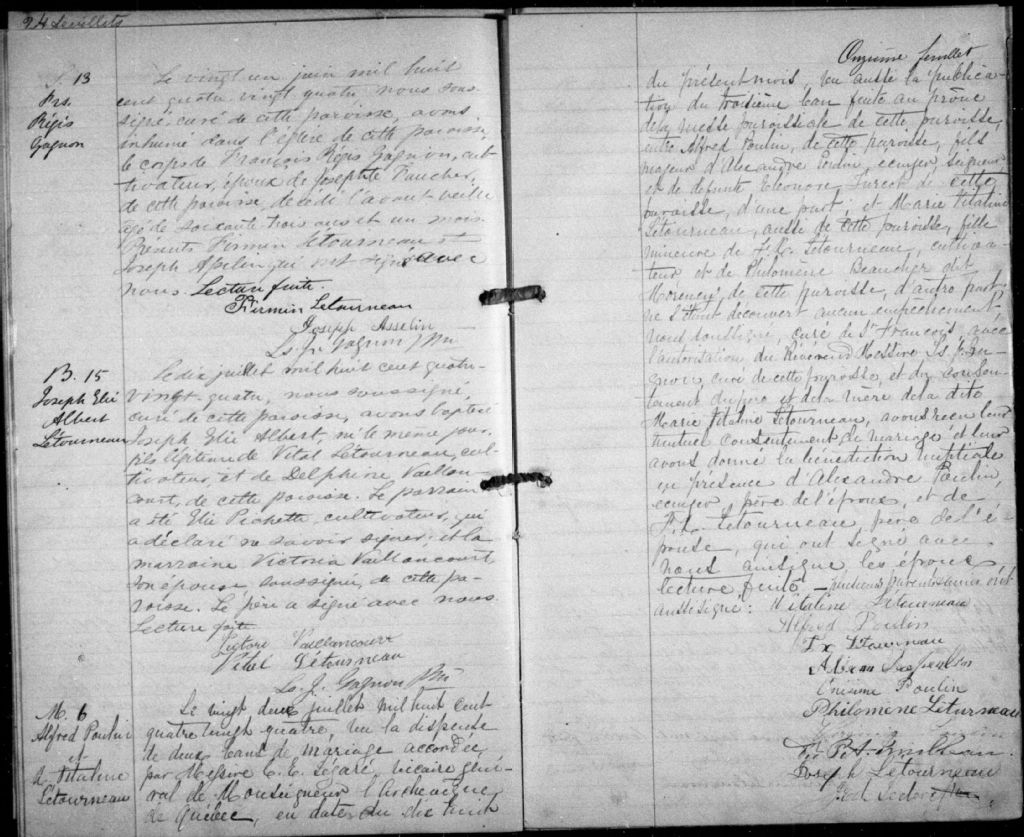 24 feuillets
S. 13
Frs.
Régis
Gagnon
Le vingt un juin mil huit
cent quatre vingt quatre nous sous-
signé, curé de cette paroisse, avons
inhumé dans l'église de cette paroisse,
le corps de François Régis Gagnon, cul-
tivateur, époux de Josephte Faucher,
de cette paroisse, décédé l'avant veille
agé de soixante trois ans et un mois.
Présents Firmin Létourneau et
Joseph Asselin qui ont signé avec
nous. Lecture faite.
Firmin Letourneau
Joseph Asselin
Ls. J. Gagnon Ptre
B. 15
Joseph Elié
Albert
Létourneau
Le dix juillet mil huit cent quatre-
vingt-quatre, nous soussigné,
curé de cette paroisse, avons baptisé
Joseph Elie Albert, né le même jour,
fils légitime de Vital Létourneau, cul-
tivateur, et de Delphine Vaillan-
court, de cette paroisse. Le parrain
a été Elie Pichette, cultivateur, qui
a déclaré ne savoir signer; et la
marraine Victoria Vaillancourt
son épouse, soussignée, de cette pa-
roisse. Le père a signé avec nous.
Lecture faite
Victore Vaillancourt
Vital Létourneau
Ls. J. Gagnon Ptre
M. 6
Alfred Poulin
et
M. Vitaline
Létourneau
Le vingt deux juillet mil huit cent
quatre vingt quatre, vu la dispense
de deux bans de mariage accordée
par Messire C. E. Légaré, vicaire géné-
ral de Monseigneur l'Archevêque
de Québec, en date du dix huit
Onzième feuillet
du présent mois, vu aussi la publica-
tion du troisième ban faite au prône
de la messe paroissiale de cette paroisse,
entre Alfred Poulin, de cette paroisse, fils
majeur d'Alexandre Poulin, ecuyer, Seigneur
et de defunte Eleonore Turcot de cette
paroisse, d'une part; et Marie Vitaline
Létourneau, aussi de cette paroisse, fille
mineure de F. X. Létourneau, cultiva-
teur et de Philomène Beaucher dit
Morency, de cette paroisse, d'autre part
ne s'étant découvert aucun empêchement,
nous soussigné, curé de St François, avec
l'autorisation du Révérend Messire Ls. J. Ga-
gnon, curé de cette paroisse, et du consen-
tement du père et de la mère de la dite
Marie Vitaline Létourneau, avons reçu leur
mutuel consentement de mariage et leur
avons donné la bénédiction nuptiale
en présence d'Alexandre Poulin,
ecuyer, père de l'époux, et de
F. X. Létourneau, père de l'é-
pouse, qui ont signé avec
nous ainsi que les époux
lecture faite – plusieurs parents et amis ont
aussi signé: Vitaline Létourneau
Alfred Poulin
F X Létourneau
Onésime Poulin
Philomène Letourneau
Joseph Létourneau